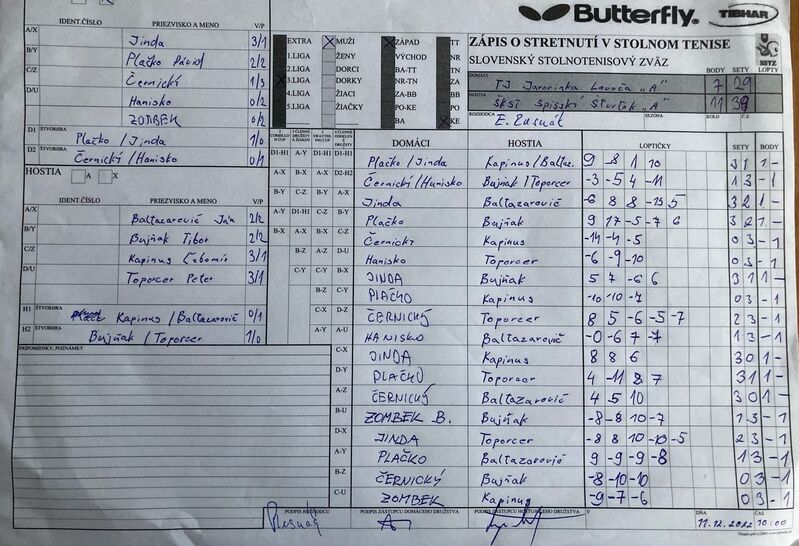 Butterfly. TIBHAR
IDENT.ČÍSLO PRIEZVISKO A MENO V/P
A/X Jinda 3/1
B/Y Plačko Dávid 2/2
C/Z Černický 1/3
D/U Hanisko 0/2
ZOMBEK 0/2
D1 ŠTVORHRA Plačko / Jinda 1/0
D2 ŠTVORHRA Černický / Hanisko 0/1
HOSTIA A X
IDENT.ČÍSLO PRIEZVISKO A MENO V/P
A/X Baltazarovič Ján 2/2
B/Y Bujňak Tibor 2/2
C/Z Kapinus Ľubomír 3/1
D/U Toporcer Peter 3/1
H1 ŠTVORHRA Kapinus / Baltazarovič 0/1
H2 ŠTVORHRA Bujňak / Toporcer 1/0
PRIPOMIENKY, POZNÁMKY
EXTRA MUŽI ZÁPAD TT
1.LIGA ŽENY VÝCHOD NR
2.LIGA DORCI BA-TT TN
3.LIGA DORKY NR-TN ZA
4.LIGA ŽIACI ZA-BB BB
5.LIGA ŽIAČKY PO-KE PO
BA KE
ZÁPIS O STRETNUTÍ V STOLNOM TENISE
SLOVENSKÝ STOLNOTENISOVÝ ZVÄZ
SSTZ
BODY SETY LOPTY
DOMÁCI TJ Javorinka Levoča "A" 7 29
HOSTIA ŠKST Spišský Štvrtok "A" 11 39
ROZHODCA E. Rusnák SEZÓNA KOLO Č.Z.
DOMÁCI HOSTIA LOPTIČKY SETY BODY
Plačko / Jinda Kapinus/Baltaz. 9 -8 1 10 3 1 1 -
Černický/Hanisko Bujňak / Toporcer -3 -5 4 -11 1 3 - 1
Jinda Baltazarovič -6 8 8 -13 5 3 2 1 -
Plačko Bujňak 9 17 -5 -7 6 3 2 1 -
Černický Kapinus -14 -4 -5 0 3 - 1
Hanisko Toporcer -6 -9 -10 0 3 - 1
JINDA Bujňak 5 7 -6 6 3 1 1 -
PLAČKO Kapinus -10 -10 -7 0 3 - 1
ČERNICKÝ Toporcer 8 5 -6 -5 -7 2 3 - 1
HANISKO Baltazarovič -0 -6 7 -7 1 3 - 1
JINDA Kapinus 8 8 6 3 0 1 -
PLAČKO Toporcer 4 -11 8 7 3 1 1 -
ČERNICKÝ Baltazarovič 4 5 10 3 0 1 -
ZOMBEK B. Bujňak -8 -8 10 -7 1 3 - 1
JINDA Toporcer -8 8 10 -10 -5 2 3 - 1
PLAČKO Baltazarovič 9 -9 -9 -8 1 3 - 1
ČERNICKÝ Bujňak -8 -10 -10 0 3 - 1
ZOMBEK Kapinus -9 -7 -6 0 3 - 1
PODPIS ROZHODCU PODPIS ZÁSTUPCU DOMÁCEHO DRUŽSTVA PODPIS ZÁSTUPCU HOSŤUJÚCEHO DRUŽSTVA V DŇA 11.12.2022 ČAS 10:00
Rusnák